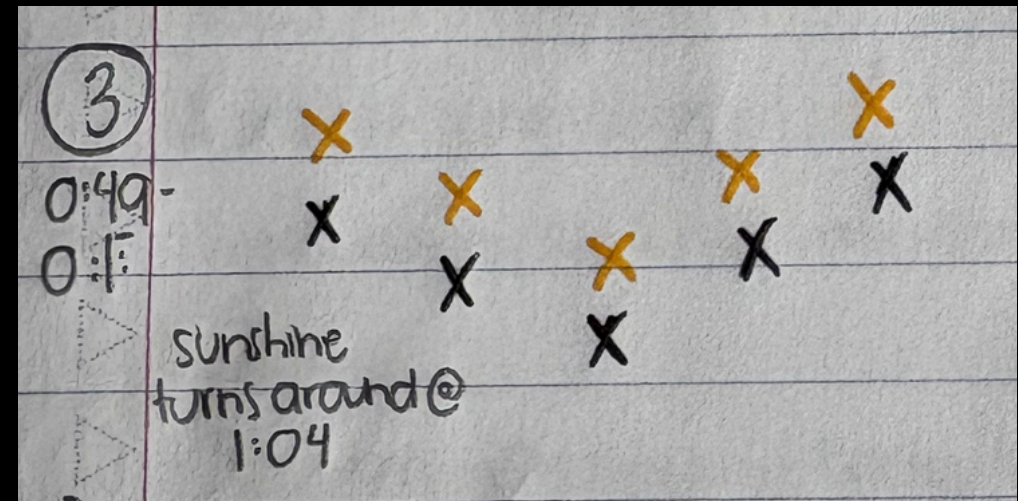 3
0:49-
X X X X X
X X X X X
sunshine
turns around @
1:04